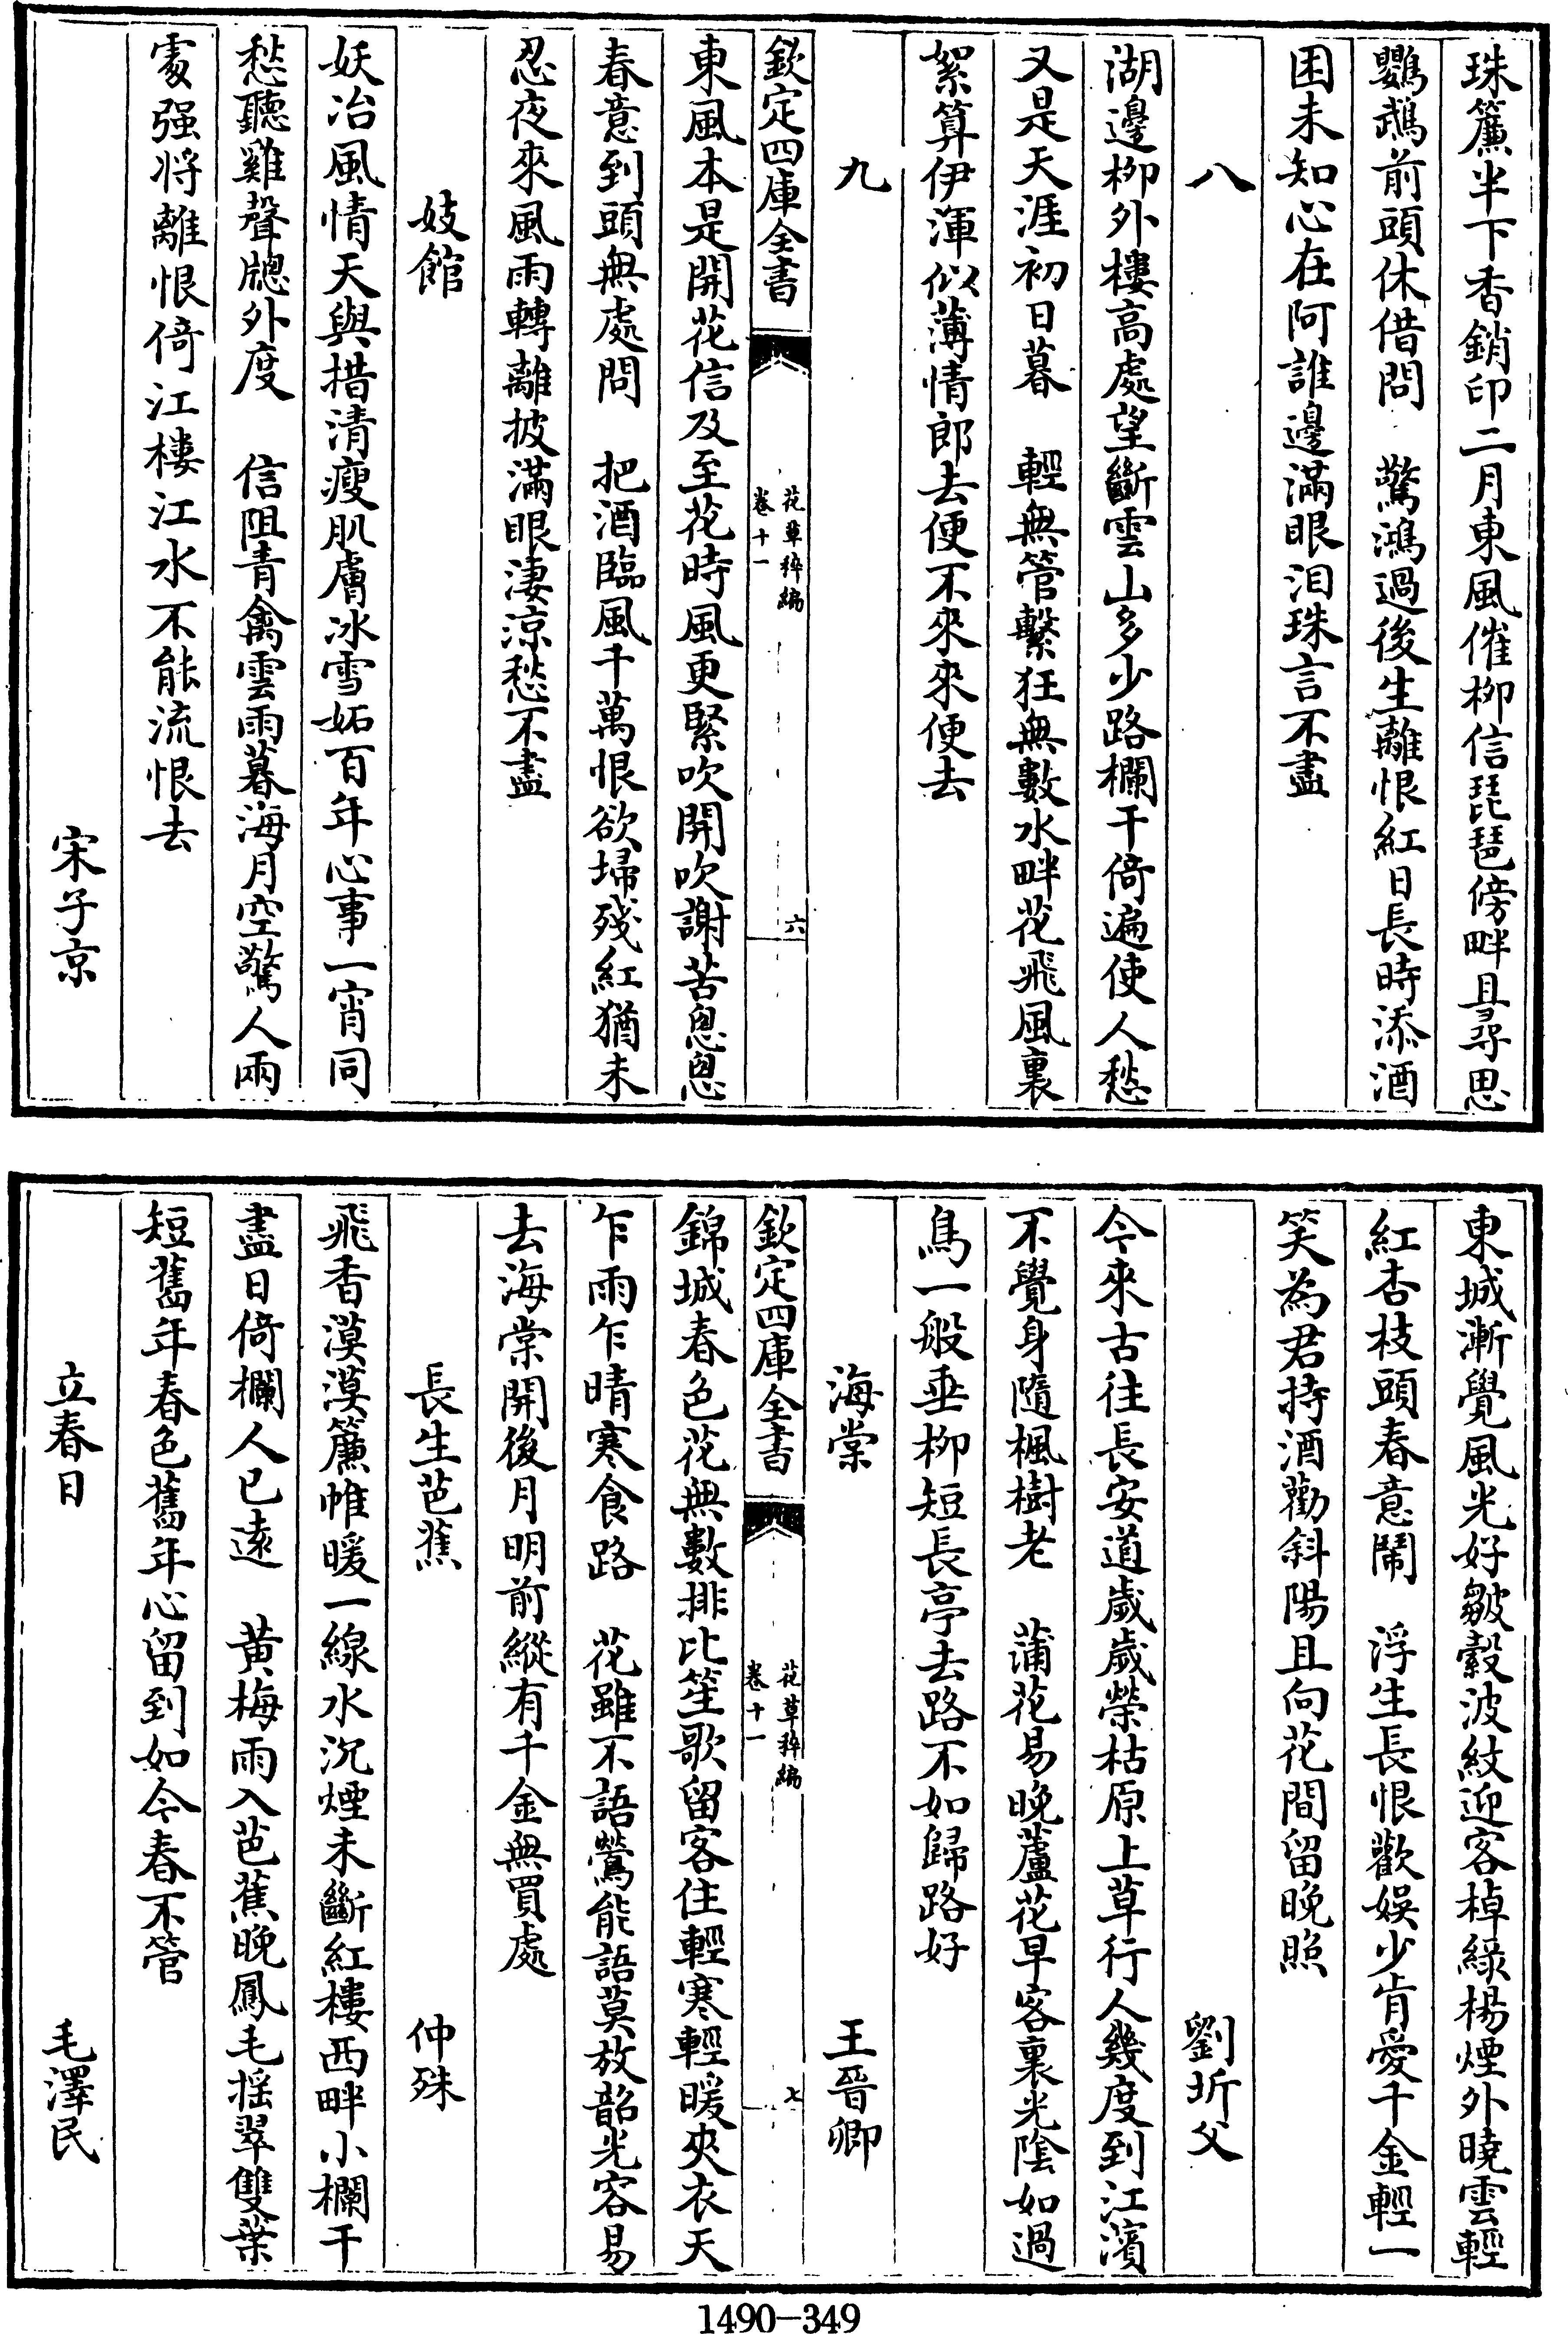 珠簾半下香銷印二月東風催柳信琵琶傍畔且尋思
鸚鵡前頭休借問　驚鴻過後生離恨紅日長時添酒
困未知心在阿誰邊滿眼泪珠言不盡
八
湖邊柳外樓高處望斷雲山多少路欄干倚遍使人愁
又是天涯初日暮　輕無管繫狂無數水畔花飛風裏
絮算伊渾似薄情郎去便不來來便去
九
欽定四庫全書
花草稡編
卷十一
六
東風本是開花信及至花時風更緊吹開吹謝苦怱怱
春意到頭無處問　把酒臨風千萬恨欲埽殘紅猶未
忍夜來風雨轉離披滿眼淒涼愁不盡
妓館
妖冶風情天與措清瘦肌膚冰雪妬百年心事一宵同
愁聽雞聲牕外度　信阻青禽雲雨暮海月空驚人兩
處强將離恨倚江樓江水不能流恨去
宋子京
東城漸覺風光好皺縠波紋迎客棹綠楊煙外曉雲輕
紅杏枝頭春意鬧　浮生長恨歡娛少肯愛千金輕一
笑為君持酒勸斜陽且向花間留晚照
劉圻父
今來古往長安道歲歲榮枯原上草行人幾度到江濱
不覺身隨楓樹老　蒲花易晚蘆花早客裏光陰如過
鳥一般垂柳短長亭去路不如歸路好
海棠　王晉卿
欽定四庫全書
花草稡編
卷十一
七
錦城春色花無數排比笙歌留客住輕寒輕暖夾衣天
乍雨乍晴寒食路　花雖不語鶯能語莫放韶光容易
去海棠開後月明前縱有千金無買處
長生芭蕉　仲殊
飛香漠漠簾帷暖一線水沉煙未斷紅樓西畔小欄干
盡日倚欄人已遠　黄梅雨入芭蕉晚鳳毛揺翠雙葉
短舊年春色舊年心留到如今春不管
立春日　毛澤民
1490-349